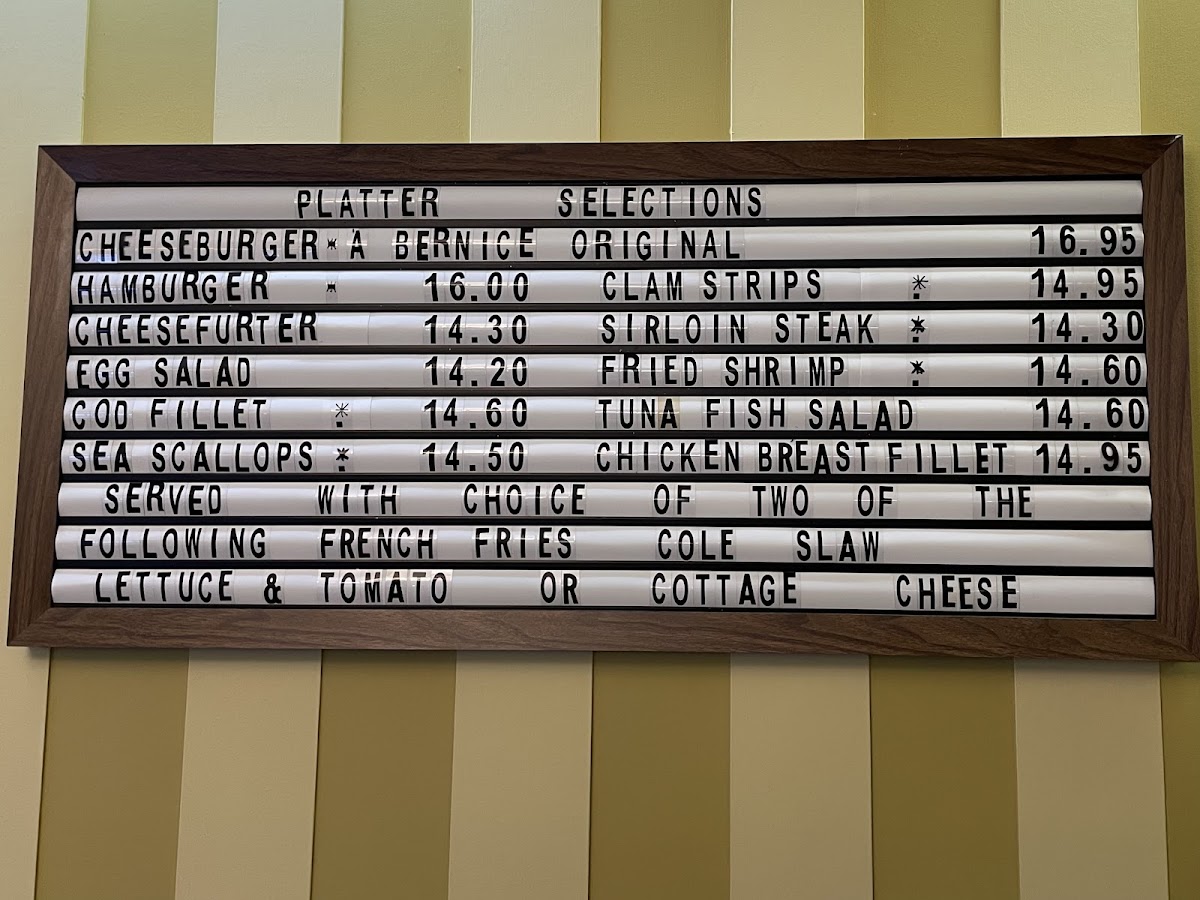 PLATTER SELECTIONS
CHEESEBURGER * A BERNICE ORIGINAL 16.95
HAMBURGER * 16.00 CLAM STRIPS * 14.95
CHEESEFURTER 14.30 SIRLOIN STEAK * 14.30
EGG SALAD 14.20 FRIED SHRIMP * 14.60
COD FILLET * 14.60 TUNA FISH SALAD 14.60
SEA SCALLOPS * 14.50 CHICKEN BREAST FILLET 14.95
SERVED WITH CHOICE OF TWO OF THE
FOLLOWING FRENCH FRIES COLE SLAW
LETTUCE & TOMATO OR COTTAGE CHEESE